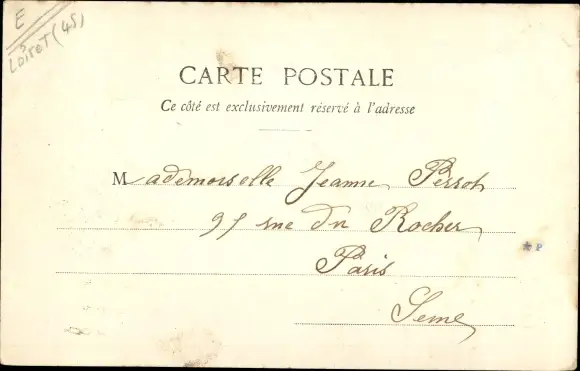 E
Loiret (45)
CARTE POSTALE
Ce côté est exclusivement réservé à l'adresse
Mademoiselle Jeanne Perrot
95 rue du Rocher
Paris
Seine
* P